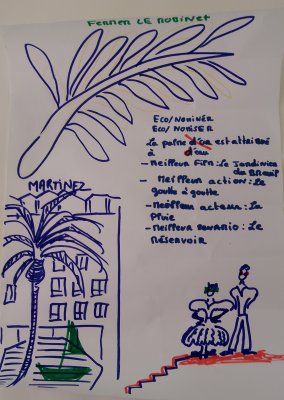 FERMER LE ROBINET
ECO/NOMINER
ECO/NOMISER
La palme d'or est attribué
à d'eau
- Meilleur Film : Le Jardinier
du Breuil
- Meilleur action : Le
goutte à goutte
- Meilleur acteur : La
Pluie
- Meilleur scenario : Le
Réservoir
MARTINEZ